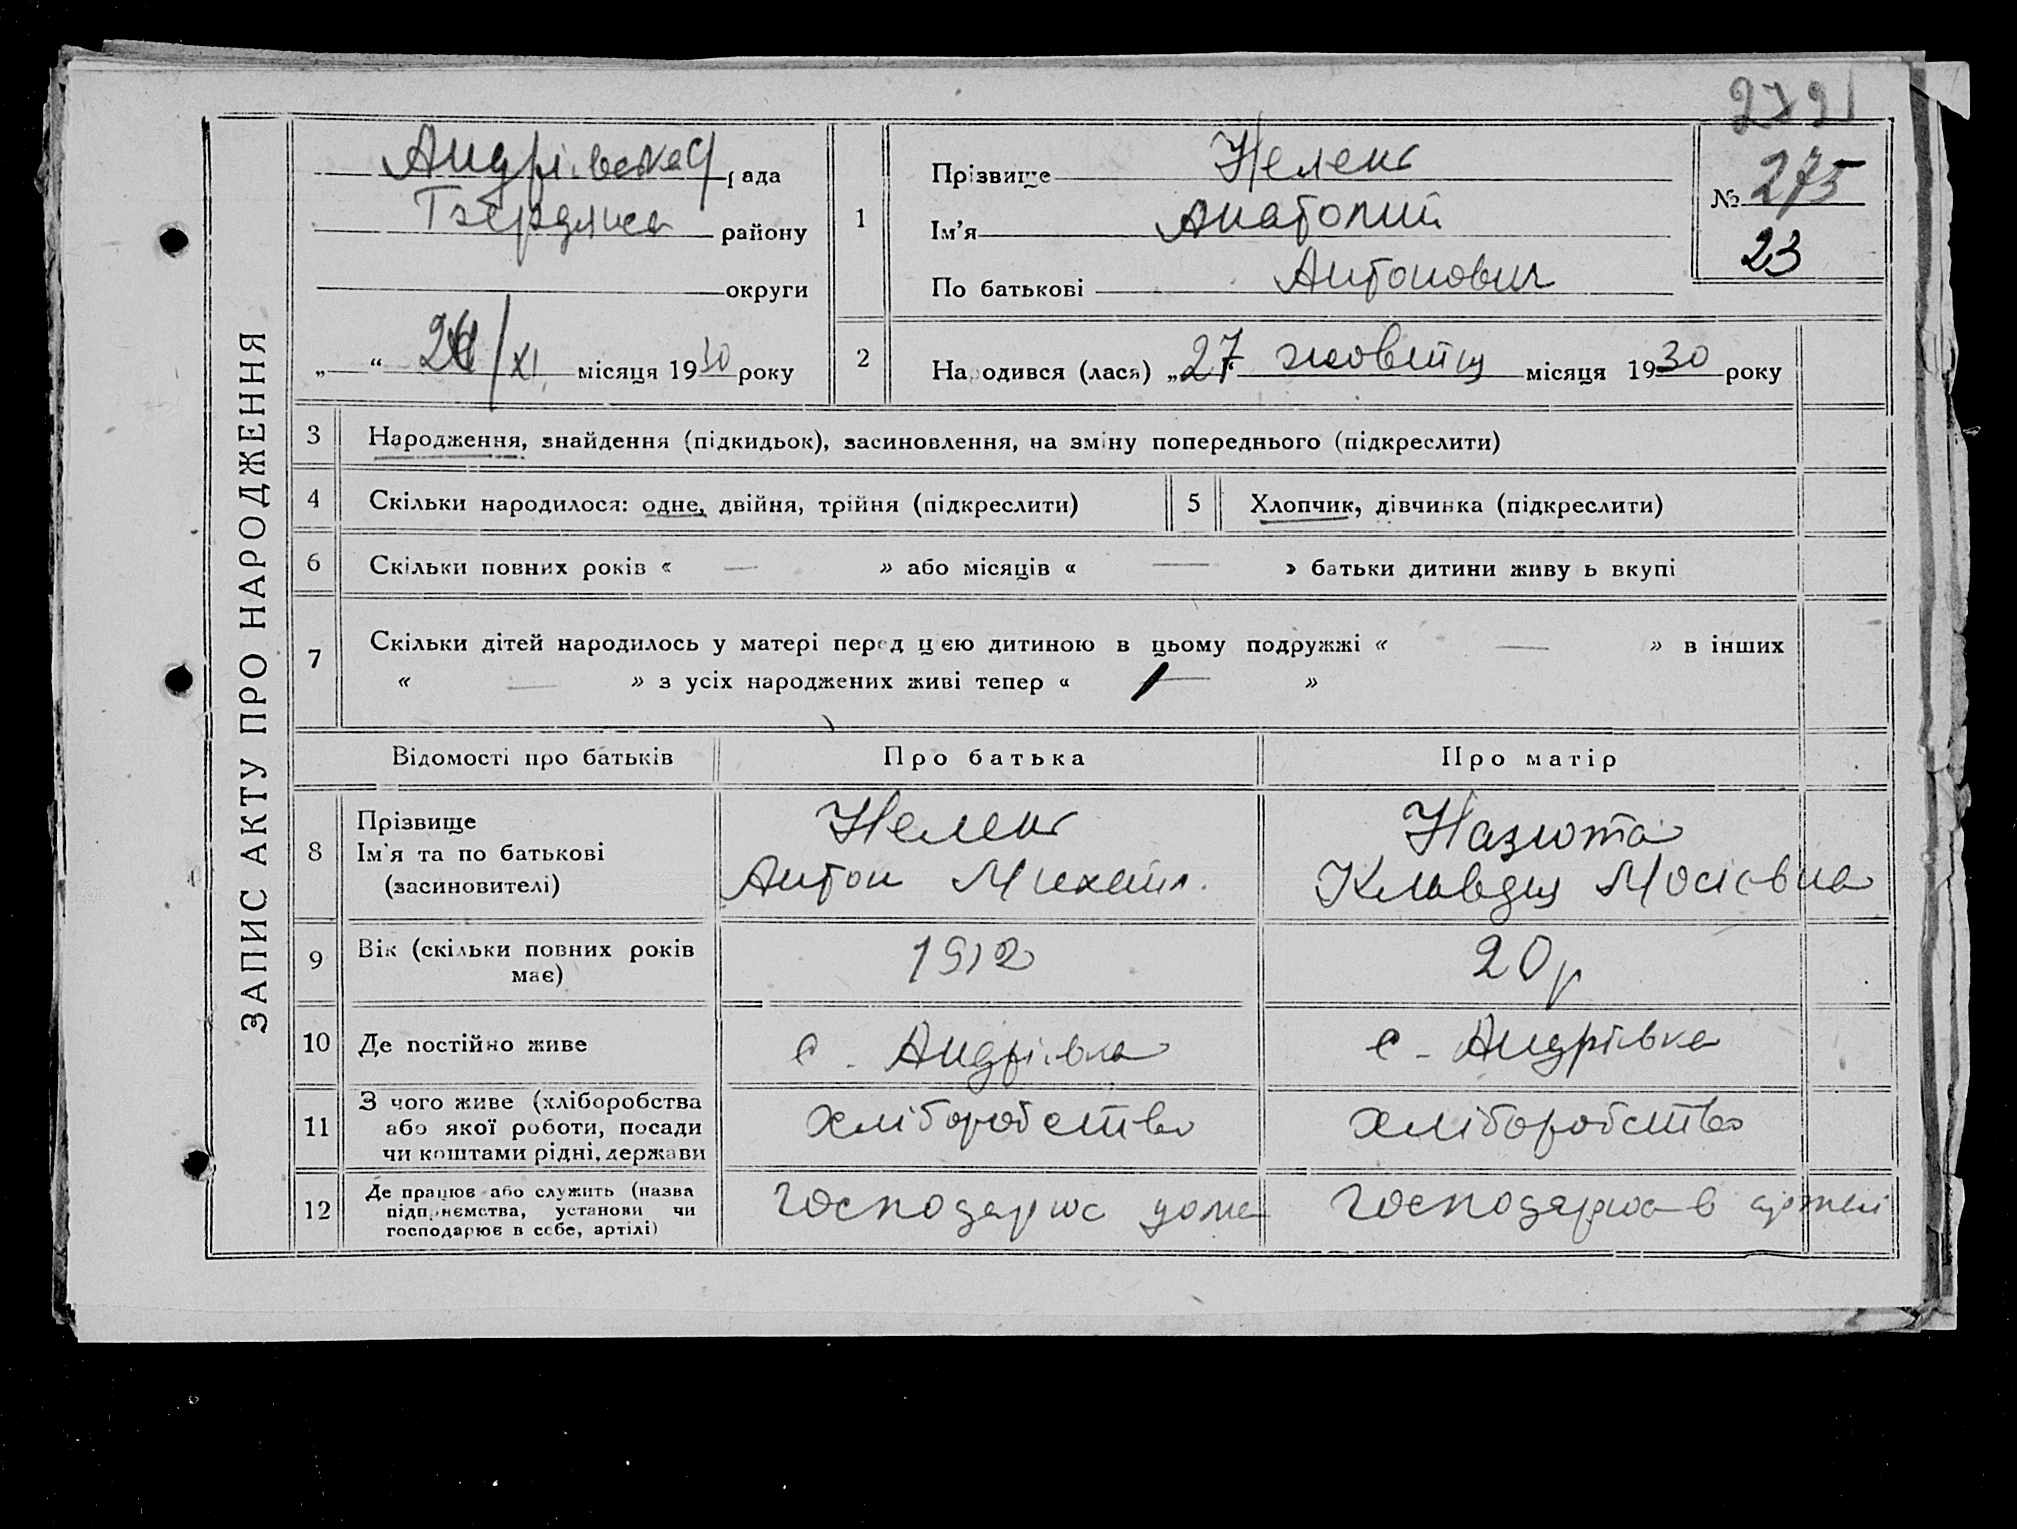 2791
ЗАПИС АКТУ ПРО НАРОДЖЕННЯ
Андрівская рада
району
округи
„ “ /XI місяця 1930 року
1
Прізвище Нелень
Ім'я Анатолий
По батькові Антонович
№ 275
23
2
Народився (лася) „27“ жовтня місяця 1930 року
3 Народження, знайдення (підкидьок), засиновлення, на зміну попереднього (підкреслити)
4 Скільки народилося: одне, двійня, трійня (підкреслити) 5 Хлопчик, дівчинка (підкреслити)
6 Скільки повних років « — » або місяців « — » батьки дитини живуть вкупі
7 Скільки дітей народилось у матері перед цією дитиною в цьому подружжі « — » в інших
« — » з усіх народжених живі тепер « — »
Відомості про батьків Про батька Про матір
8 Прізвище
Ім'я та по батькові
(засиновителі)
Нелень
Антон Михайл.
Назюта
Клавдия Мосієвна
9 Вік (скільки повних років
має)
1912
20 р
10 Де постійно живе с. Андрівка с. Андрівка
11 З чого живе (хліборобства
або якої роботи, посади
чи коштами рідні, держави
хліборобство
хліборобство
12 Де працює або служить (назва
підприємства, установи чи
господарює в себе, артілі)
господарює дома
господарює в артілі